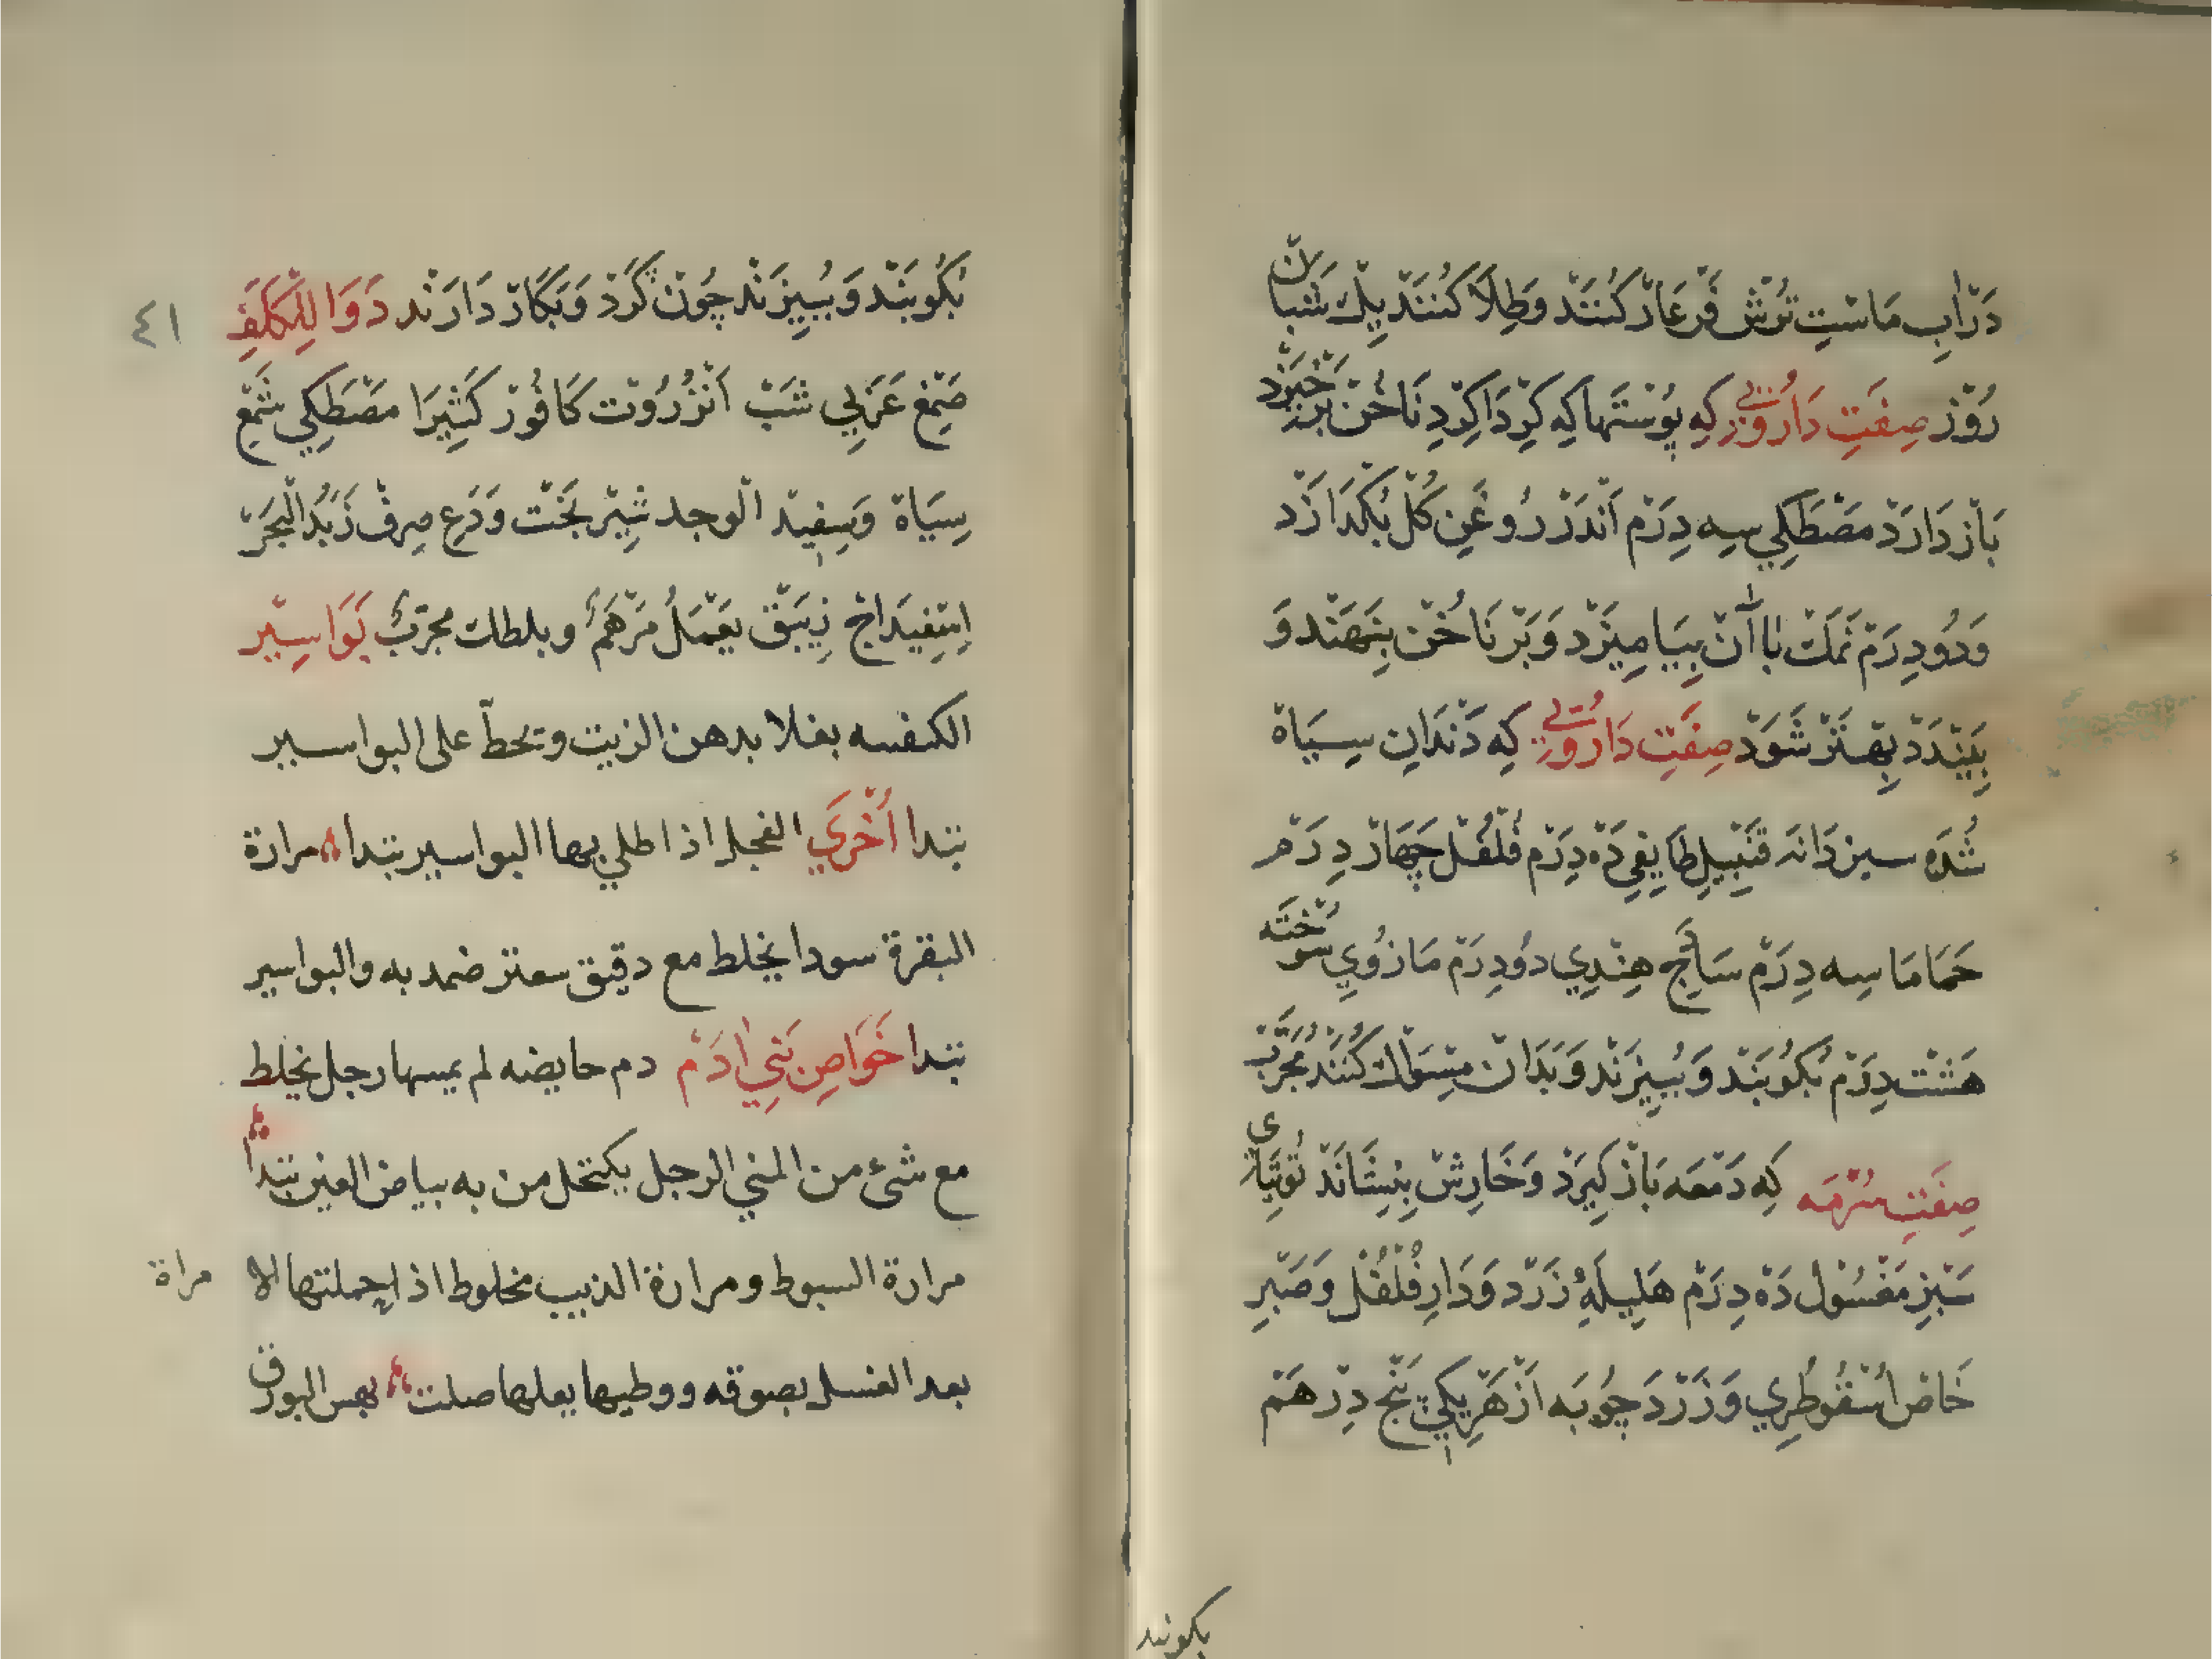 دَرْآبِ مَاسْتِ تُرْش فَرْعَارْ كُنَنَدْ وَطِلَاْ كُنَنَدْ يِكْ شَبَانْ
رُوْز صِفَتِ دَارُوْيِي كِه پُوسْتَهاكِه كِرْدَاكِرْدِ نَاخُنْ بَرْخِيزَد
بَازْدَارَدْ مَصْطَكِي سِه دِرَمْ اَنْدَرْ رُوغَنِ كُلْ بُكدَازَدْ
وَدُودِرَمْ نَمَكْ باآنْ بِيَامِيزَدْ وَبَرْنَاخُنْ بِنِهَنْد وَ
بِبَنْدَدْ بِهْتَرْ شَوَدْ صِفَتِ دَارُوْيِي كِه دَنْدَانِ سِيَاهْ
شُدَه سبز دَانَه قَنْبِيلِ طَايِفِي دَهْ دِرَمْ فُلْفُلْ چَهَارْ دِرَمْ
حَمَامَا سِه دِرَمْ سَاذَجِ هِنْدِي دُودِرَمْ مَازُوِي سُوخْتَه
هَشْتْ دِرَمْ بُكُوبَنْد وَبُبِيزَنْد وَبَدَانْ مِسْوَاكْ كُنَنْد مُجَرَّبْ
صِفَتِ سُرْمَه كِه دَمْعَه بَازْكِيرَدْ وَخَارِشْ بِنِشَانَدْ تُوتِيَاىِ
سَبْزِ مَغْسُولْ دَهْ دِرَمْ هَلِيلَهِٔ زَرْد وَدَارِفُلْفُلْ وَصَبْرِ
خَاصْ اسْقُوطِرِي وَزَرْدَچُوبَه اَزْهَرْيِكِي پَنْج دِرْهَمْ
بكوبند
بُكُوبَنْد وَبُبِيزَنْد چُونْ كَرْدْ وَبَكَارْ دَارَنْد دَوَا لِلْكَلَفِ
صَمْغ عَرَبِي شَبْ اَنْزَرُوتْ كَافُورْ كَثِيرَا مَصْطَكِي شَمْعِ
سِيَاهْ وَسِفِيدْ الْوجد شِيْر بَخْتْ وَدَعِ صِرفْ زَبَدُ الْبَحَرْ
اِسْفِيدَاجْ زِيبَقْ يَعْمَلُ مَرْهَمٌ وبلطك مجرّبٌ بَوَاسِيْر
الكنفسه بغلا بدهن الزيت وتحطّ على البواسير
تبدا اُخْرَي الفجل اذا طلي بها البواسير تبدا مرارة
البقرة سودا يخلط مع دقيق سعتر ضمد به والبواسير
تبدا خَوَاصِ بَنِي ادَمْ دم حايضه لم يمسها رجل يخلط
مع شئ من المني الرجل يكتحل من به بياض العين تبدا
مرارة السبوط ومرارة الذيب مخلوط اذا حملتها الا مراة
بعد الغسل بصوفه ووطيها بعلها صلت بهس البورق
٤١